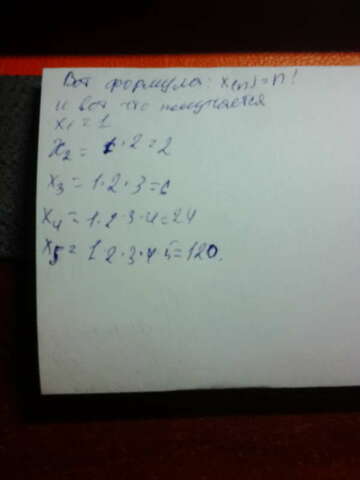 Вот формула: x(n)=n!
и вот что получается
x₁=1
x₂=1·2=2
x₃=1·2·3=6
x₄=1·2·3·4=24
x₅=1·2·3·4·5=120.